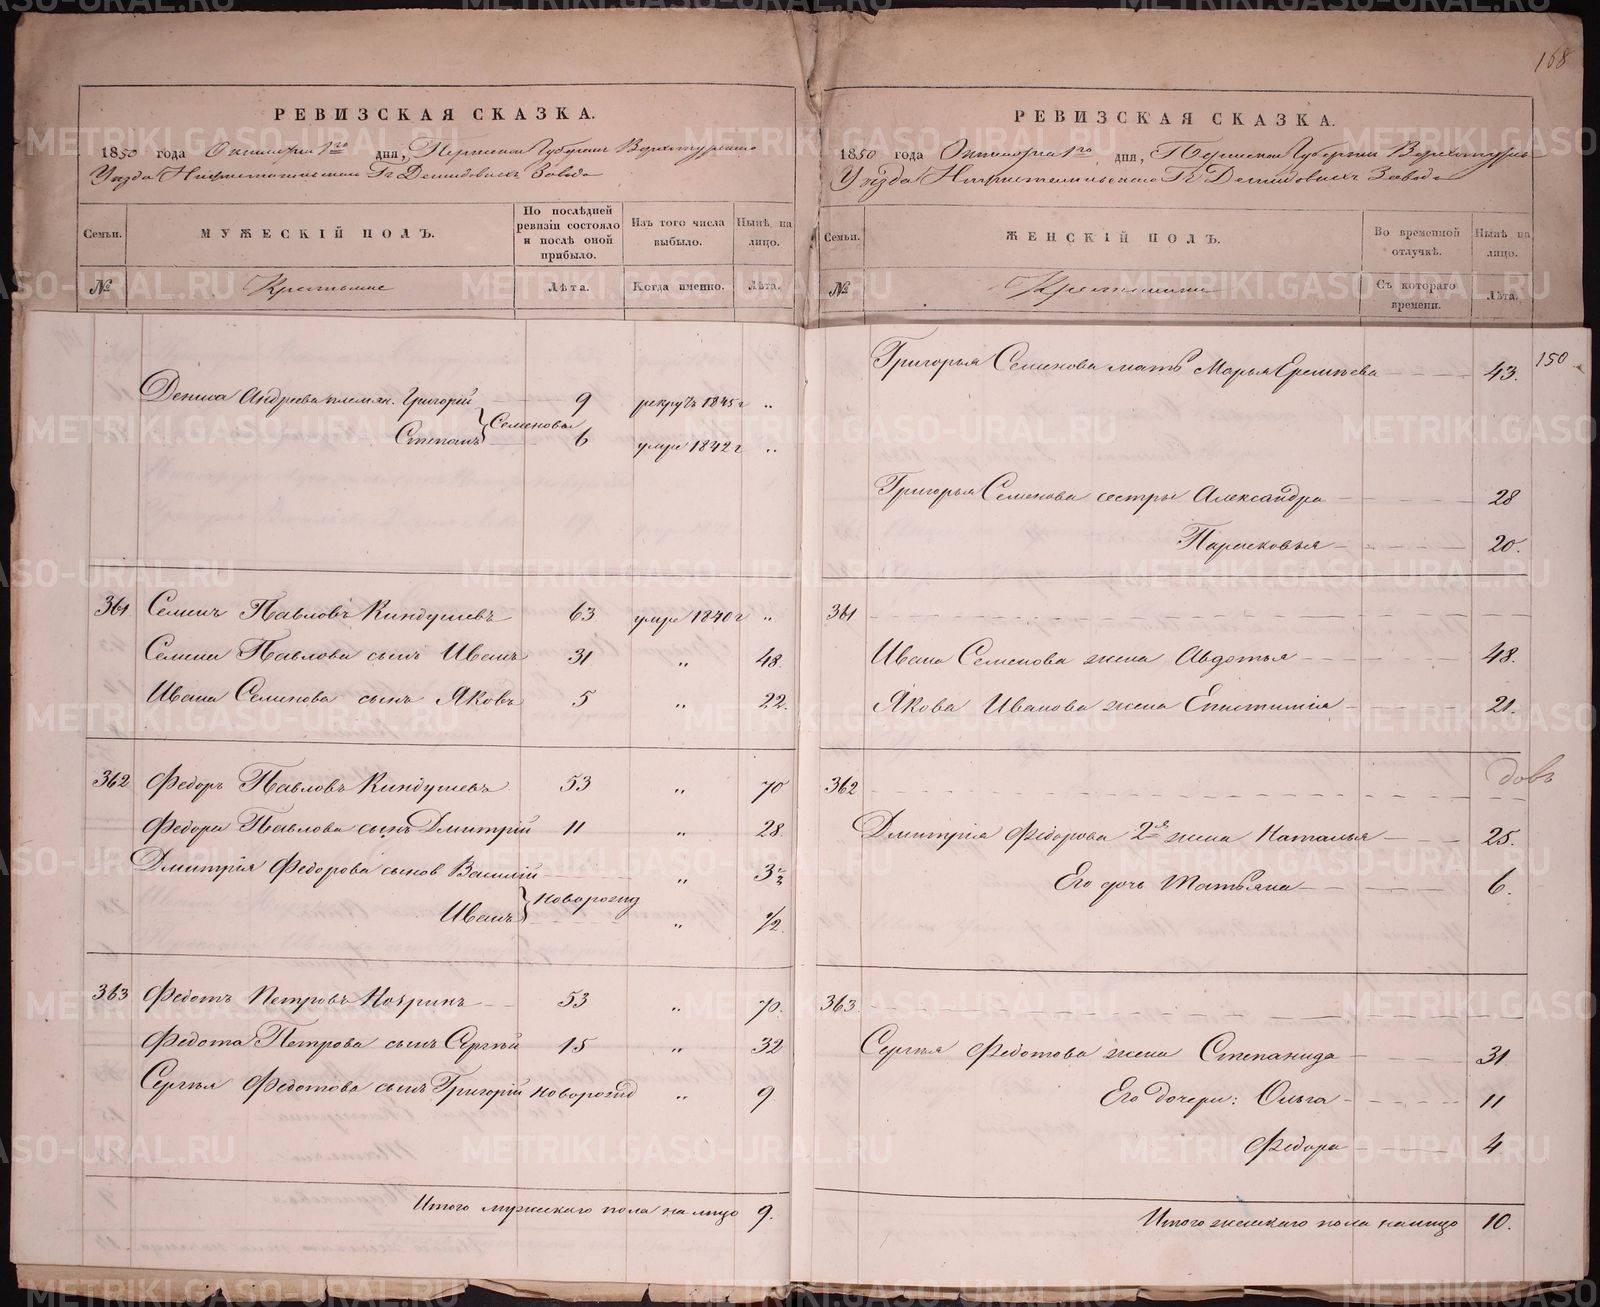 168
РЕВИЗСКАЯ СКАЗКА.
1850 года Октября 1го дня, Пермской Губернии Верхотурскаго
Уѣзда Нижнетагильскаго Гг Демидовыхъ Завода
Семьи.
МУЖЕСКІЙ ПОЛЪ.
По послѣдней ревизіи состояло и послѣ оной прибыло.
Изъ того числа выбыло.
Нынѣ на лицо.
№
Крестьяне
Лѣта.
Когда именно.
Лѣта.
Дениса Андреева племян. Григорій 9 рекрутъ 1845 г „
Степанъ } Семеновы 6 умре 1842 г „
361 Семенъ Павловъ Киндушевъ 63 умре 1840 г „
Семена Павлова сынъ Иванъ 31 „ 48.
Ивана Семенова сынъ Яковъ 5 „ 22.
362 Федоръ Павловъ Киндушевъ 53 „ 70
Федора Павлова сынъ Дмитрій 11 „ 28
Дмитрія Федорова сынов Василій „ 3½
Иванъ } новорожд „ ½
363 Федотъ Петровъ 53 „ 70.
Федота Петрова сынъ Сергѣй 15 „ 32
Сергѣя Федотова сынъ Григорій новорожд „ 9
Итого мужескаго пола на лицо 9.
РЕВИЗСКАЯ СКАЗКА.
1850 года Октября 1го дня, Пермской Губерніи Верхотурск
Уѣзда Нижнетагильскаго Гг Демидовыхъ Завода
Семьи.
ЖЕНСКІЙ ПОЛЪ.
Во временной отлучкѣ.
Нынѣ на лицо.
№
Крестьянки
Съ котораго времени.
Лѣта.
150
Григорья Семенова мать Марья Еремѣева 43.
Григорья Семенова сестры Александра 28
Парасковья 20.
361
Ивана Семенова жена Авдотья 48.
Якова Иванова жена Епистимія 21.
362
довъ
Дмитрія Федорова 2я жена Наталья 25.
Его дочь Татьяна 6.
363.
Сергѣя Федотова жена Степанида 31
Его дочери: Ольга 11
Федора 4
Итого женскаго пола налицо 10.
METRIKI.GASO-URAL.RU